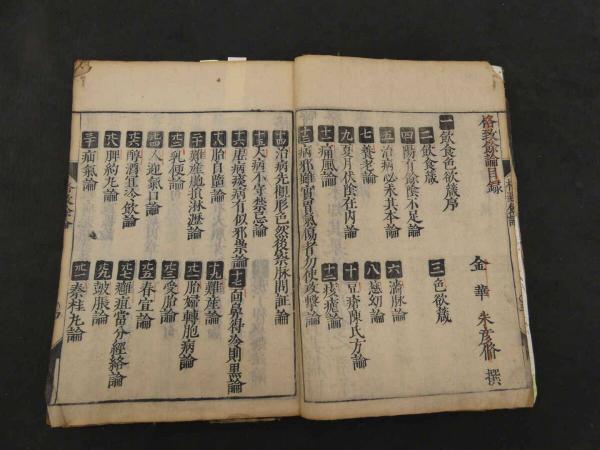 格致餘論目錄
金華 朱彥脩 撰
一 飲食色欲箴序
二 飲食箴 三 色欲箴
四 陽有餘陰不足論
五 治病必求其本論 六 濇脉論
七 養老論 八 慈幼論
九 夏月伏陰在內論 十 豆瘡陳氏方論
十一 痛風論 十二 痎瘧論
十三 病邪雖實胃氣傷者勿使攻擊論
十四 治病先觀形色然後察脉問証論
十五 大病不守禁忌論
十六 虛病痰病有似邪祟論 十七 面鼻得冷則黑論
十八 胎自墮論 十九 難產論
二十 難產胞損淋瀝論 廿一 胎婦轉胞病論
廿二 乳硬論 廿三 受胎論
廿四 人迎氣口論 廿五 春宣論
廿六 醇酒宜冷飲論 廿七 癰疽當分經絡論
廿八 脾約丸論 廿九 皷脹論
三十 疝氣論 卅一 秦桂丸論